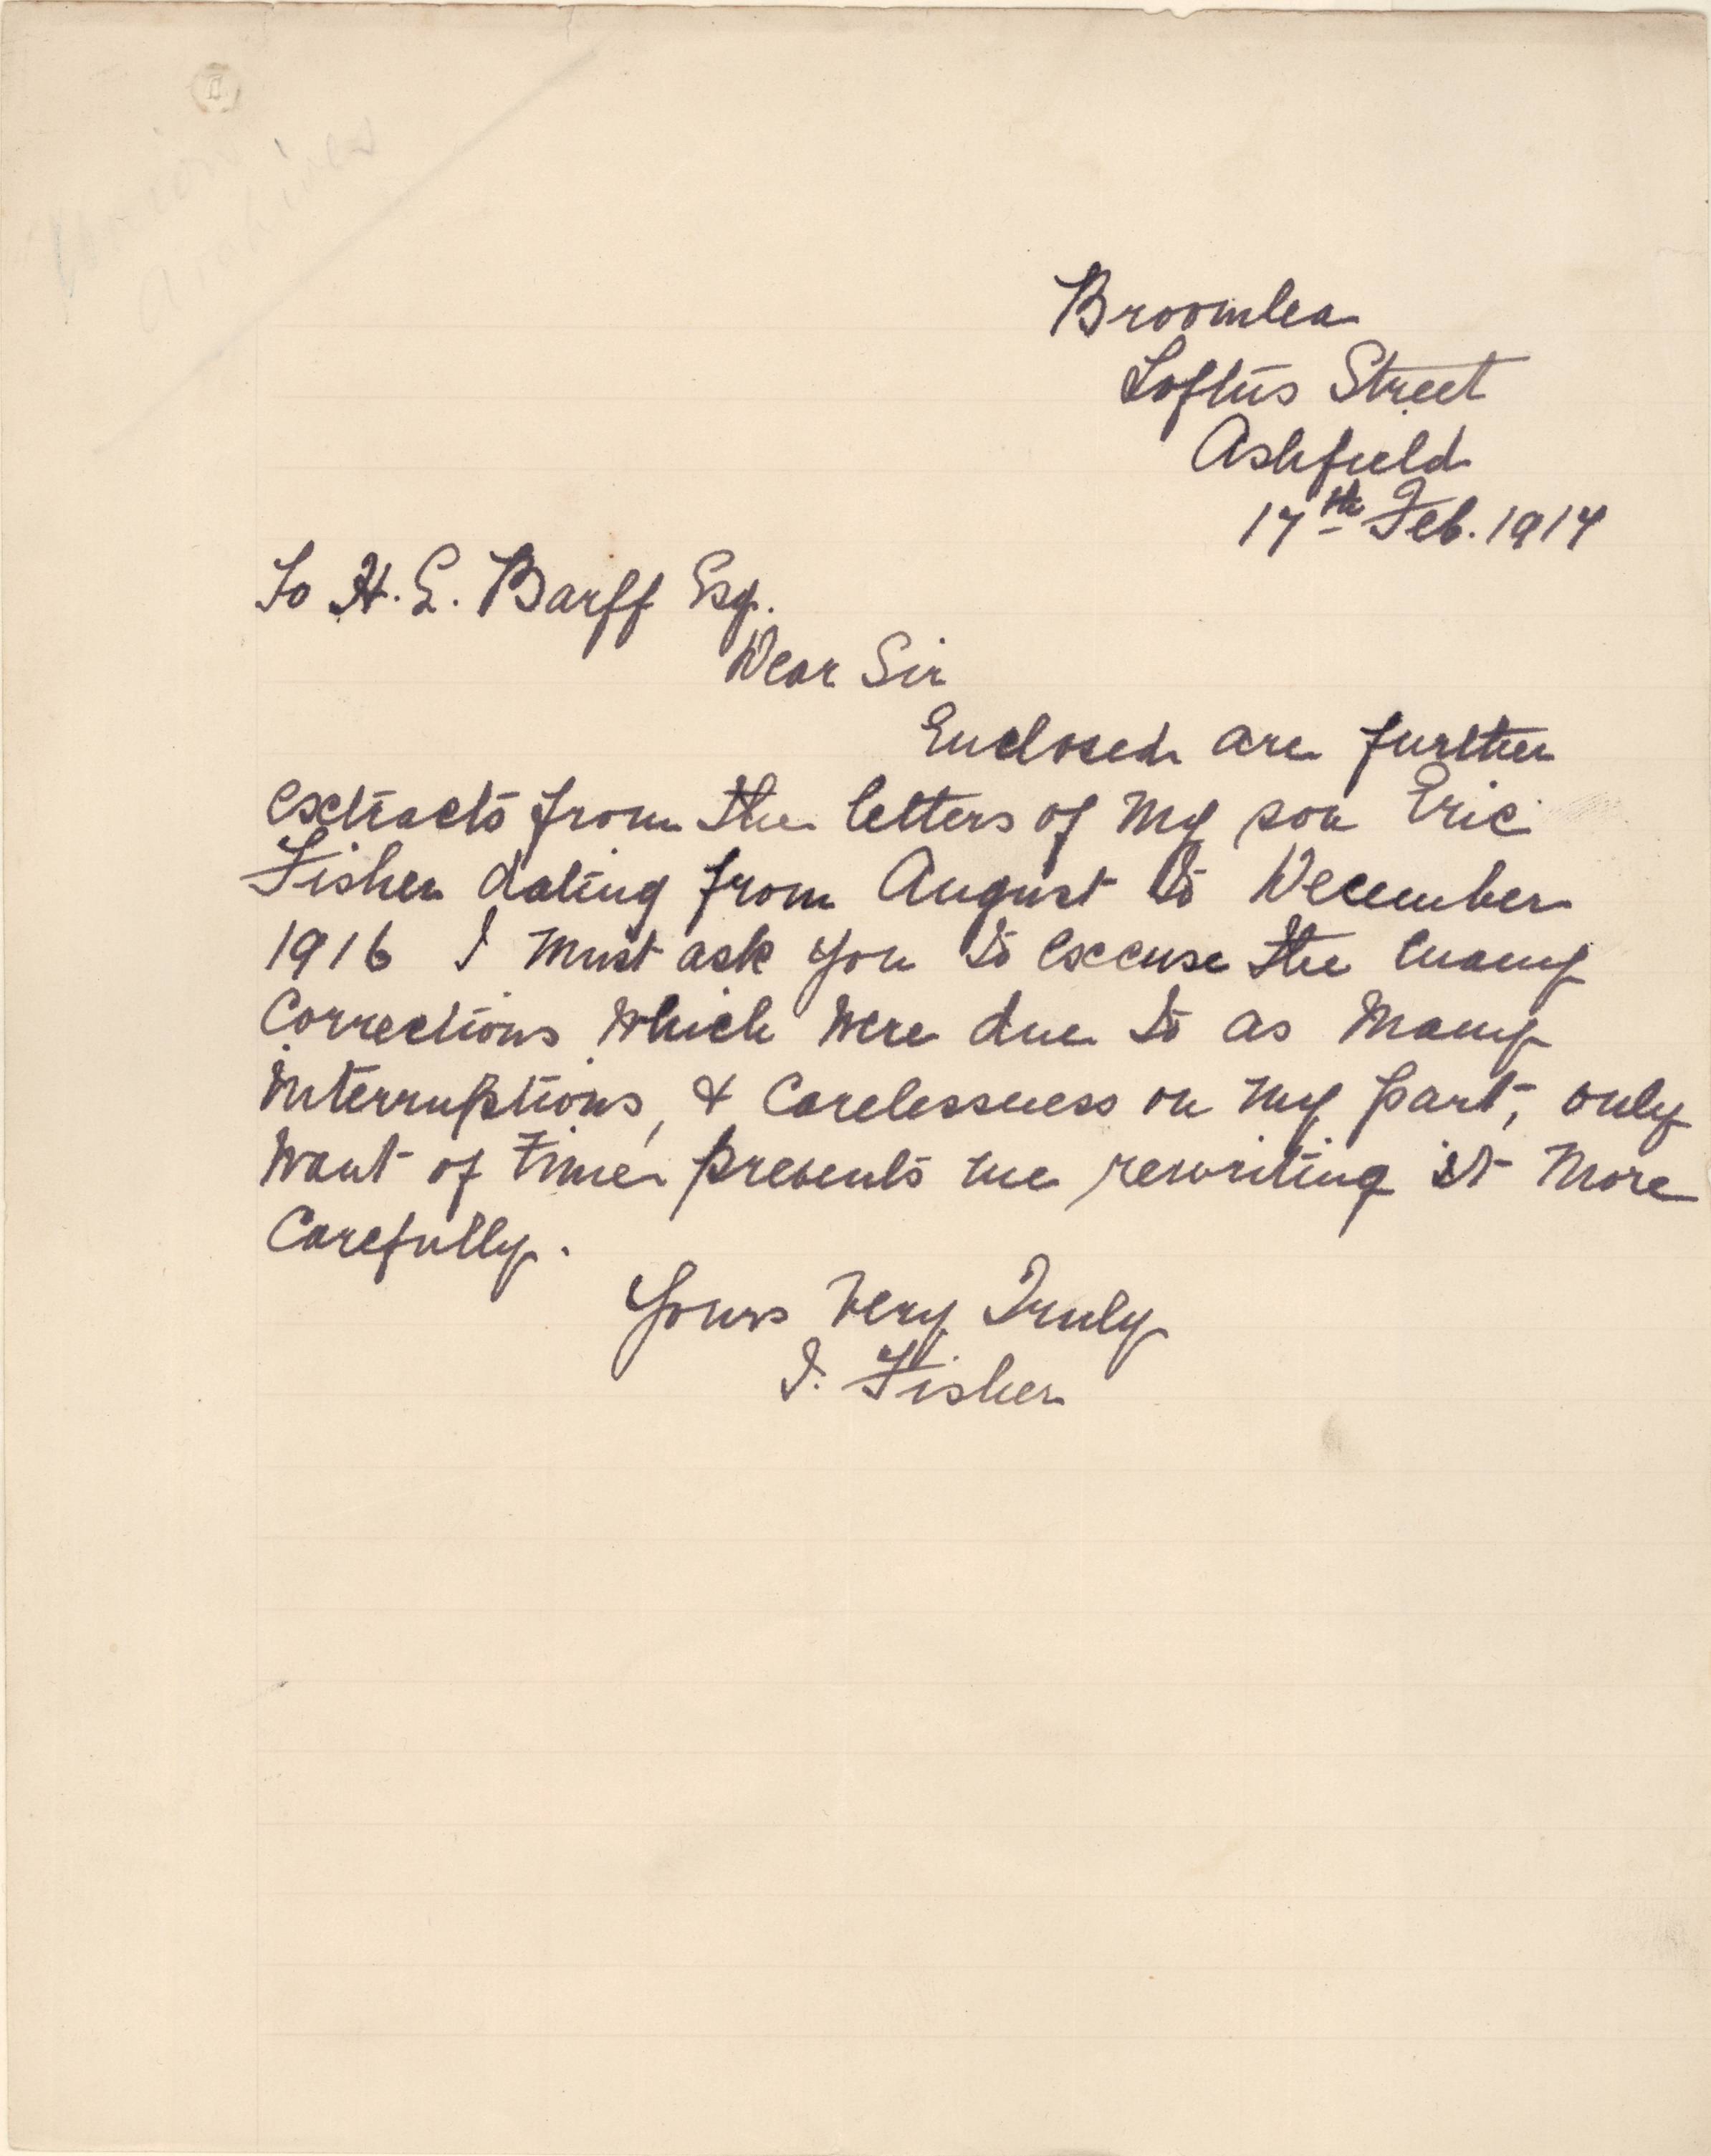 Broomlea
Loftus Street
Ashfield
17th Feb. 1917
To H. E. Barff Esq.
Dear Sir
Enclosed are further
extracts from the letters of my son Eric
Fisher dating from August to December
1916 I must ask you to excuse the many
corrections which were due to as many
interruptions, & carelessness on my part, only
want of time prevents me rewriting it more
carefully.
Yours Very Truly
I. Fisher